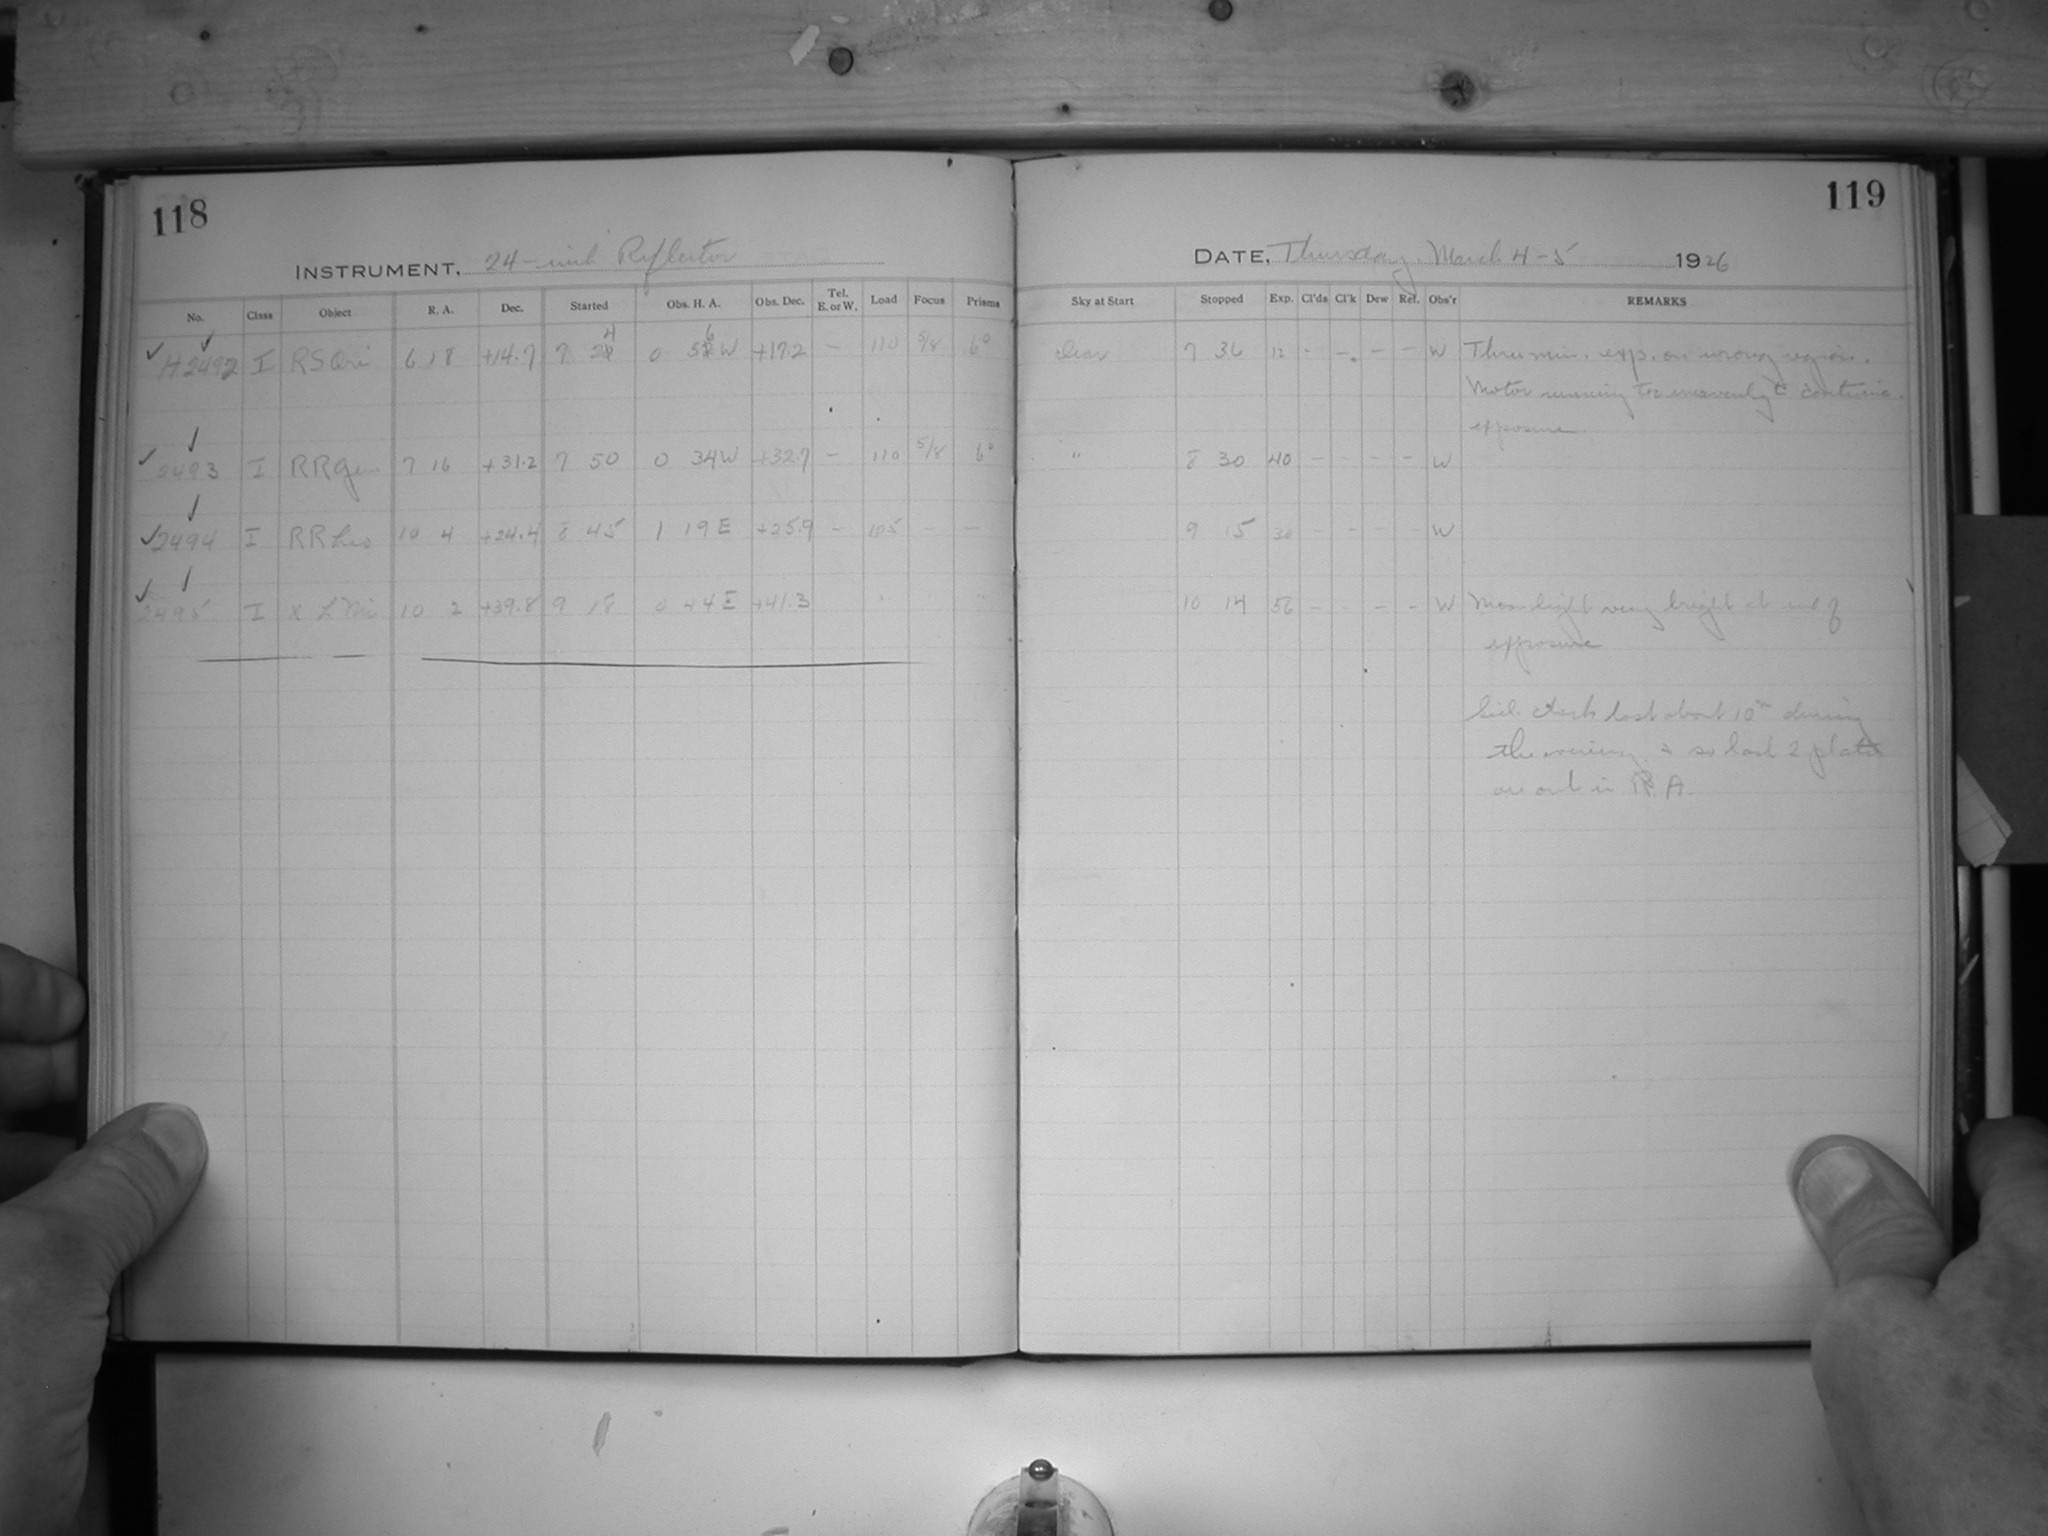 118
INSTRUMENT, 24-inch Reflector
No. Class Object R. A. Dec. Started Obs. H. A. Obs. Dec. Tel. E. or W. Load Focus Prisms
H2492 I RS Ori 6 18 +14.7 7 24 0 56 W +17.2 – 110 5/8 6°
2493 I RR Gem 7 16 +31.2 7 50 0 34 W +32.7 – 110 5/8 6°
2494 I RR Leo 10 4 +24.4 8 45 1 19 E +25.9 – 105 – –
2495 I X L Mi. 10 2 +39.8 9 18 0 44 E +41.3
119
DATE, Thursday, March 4-5 1926
Sky at Start Stopped Exp. Cl'ds Cl'k Dew Ref. Obs'r REMARKS
Clear 7 36 12 - – – – W Three min. exp. on wrong region.
Motor running too unevenly to continue
exposure.
" 8 30 40 – – – – W
9 15 30 – – – – W
10 14 56 – – – – W Moonlight very bright at end of
exposure
Sid. clock lost about 10m during
the evening & so last 2 plates
are out in R.A.